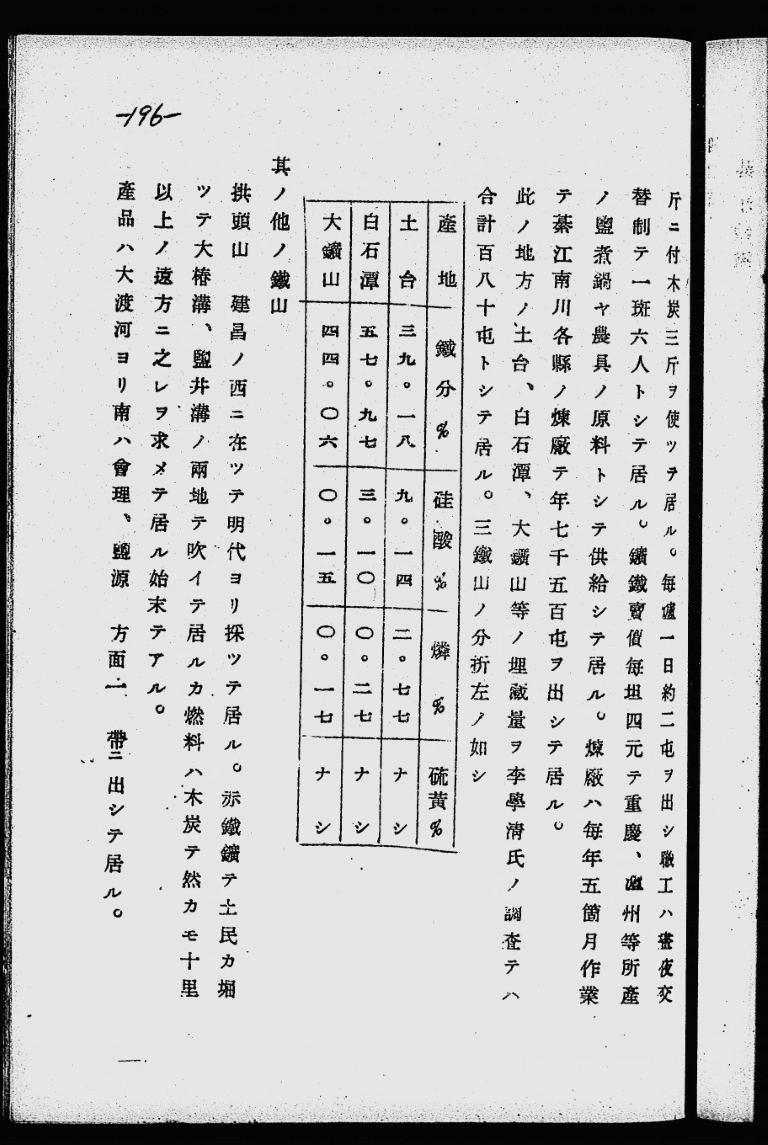 -196-
斤ニ付木炭三斤ヲ使ツテ居ル。毎爐一日約二屯ヲ出シ職工ハ晝夜交
替制テ一班六人トシテ居ル。鑛鐵賣價每担四元テ重慶、瀘州等所產
ノ鹽煮鍋ヤ農具ノ原料トシテ供給シテ居ル。煉廠ハ每年五箇月作業
テ綦江南川各縣ノ煉廠テ年七千五百屯ヲ出シテ居ル。
此ノ地方ノ土台、白石潭、大鑛山等ノ埋藏量ヲ李學淸氏ノ調查テハ
合計百八十屯トシテ居ル。三鐵山ノ分析左ノ如シ
產地 鐵分% 硅酸% 燐% 硫黃%
土台 三九。一八 九。一四 二。七七 ナシ
白石潭 五七。九七 三。一〇 〇。二七 ナシ
大鑛山 四四。〇六 〇。一五 〇。一七 ナシ
其ノ他ノ鐵山
拱頭山 建昌ノ西ニ在ツテ明代ヨリ採ツテ居ル。赤鐵鑛テ土民カ堀
ツテ大椿溝、鹽井溝ノ兩地テ吹イテ居ルカ燃料ハ木炭テ然カモ十里
以上ノ遠方ニ之レヲ求メテ居ル始末テアル。
產品ハ大渡河ヨリ南ハ會理、鹽源 方面一 帶ニ出シテ居ル。